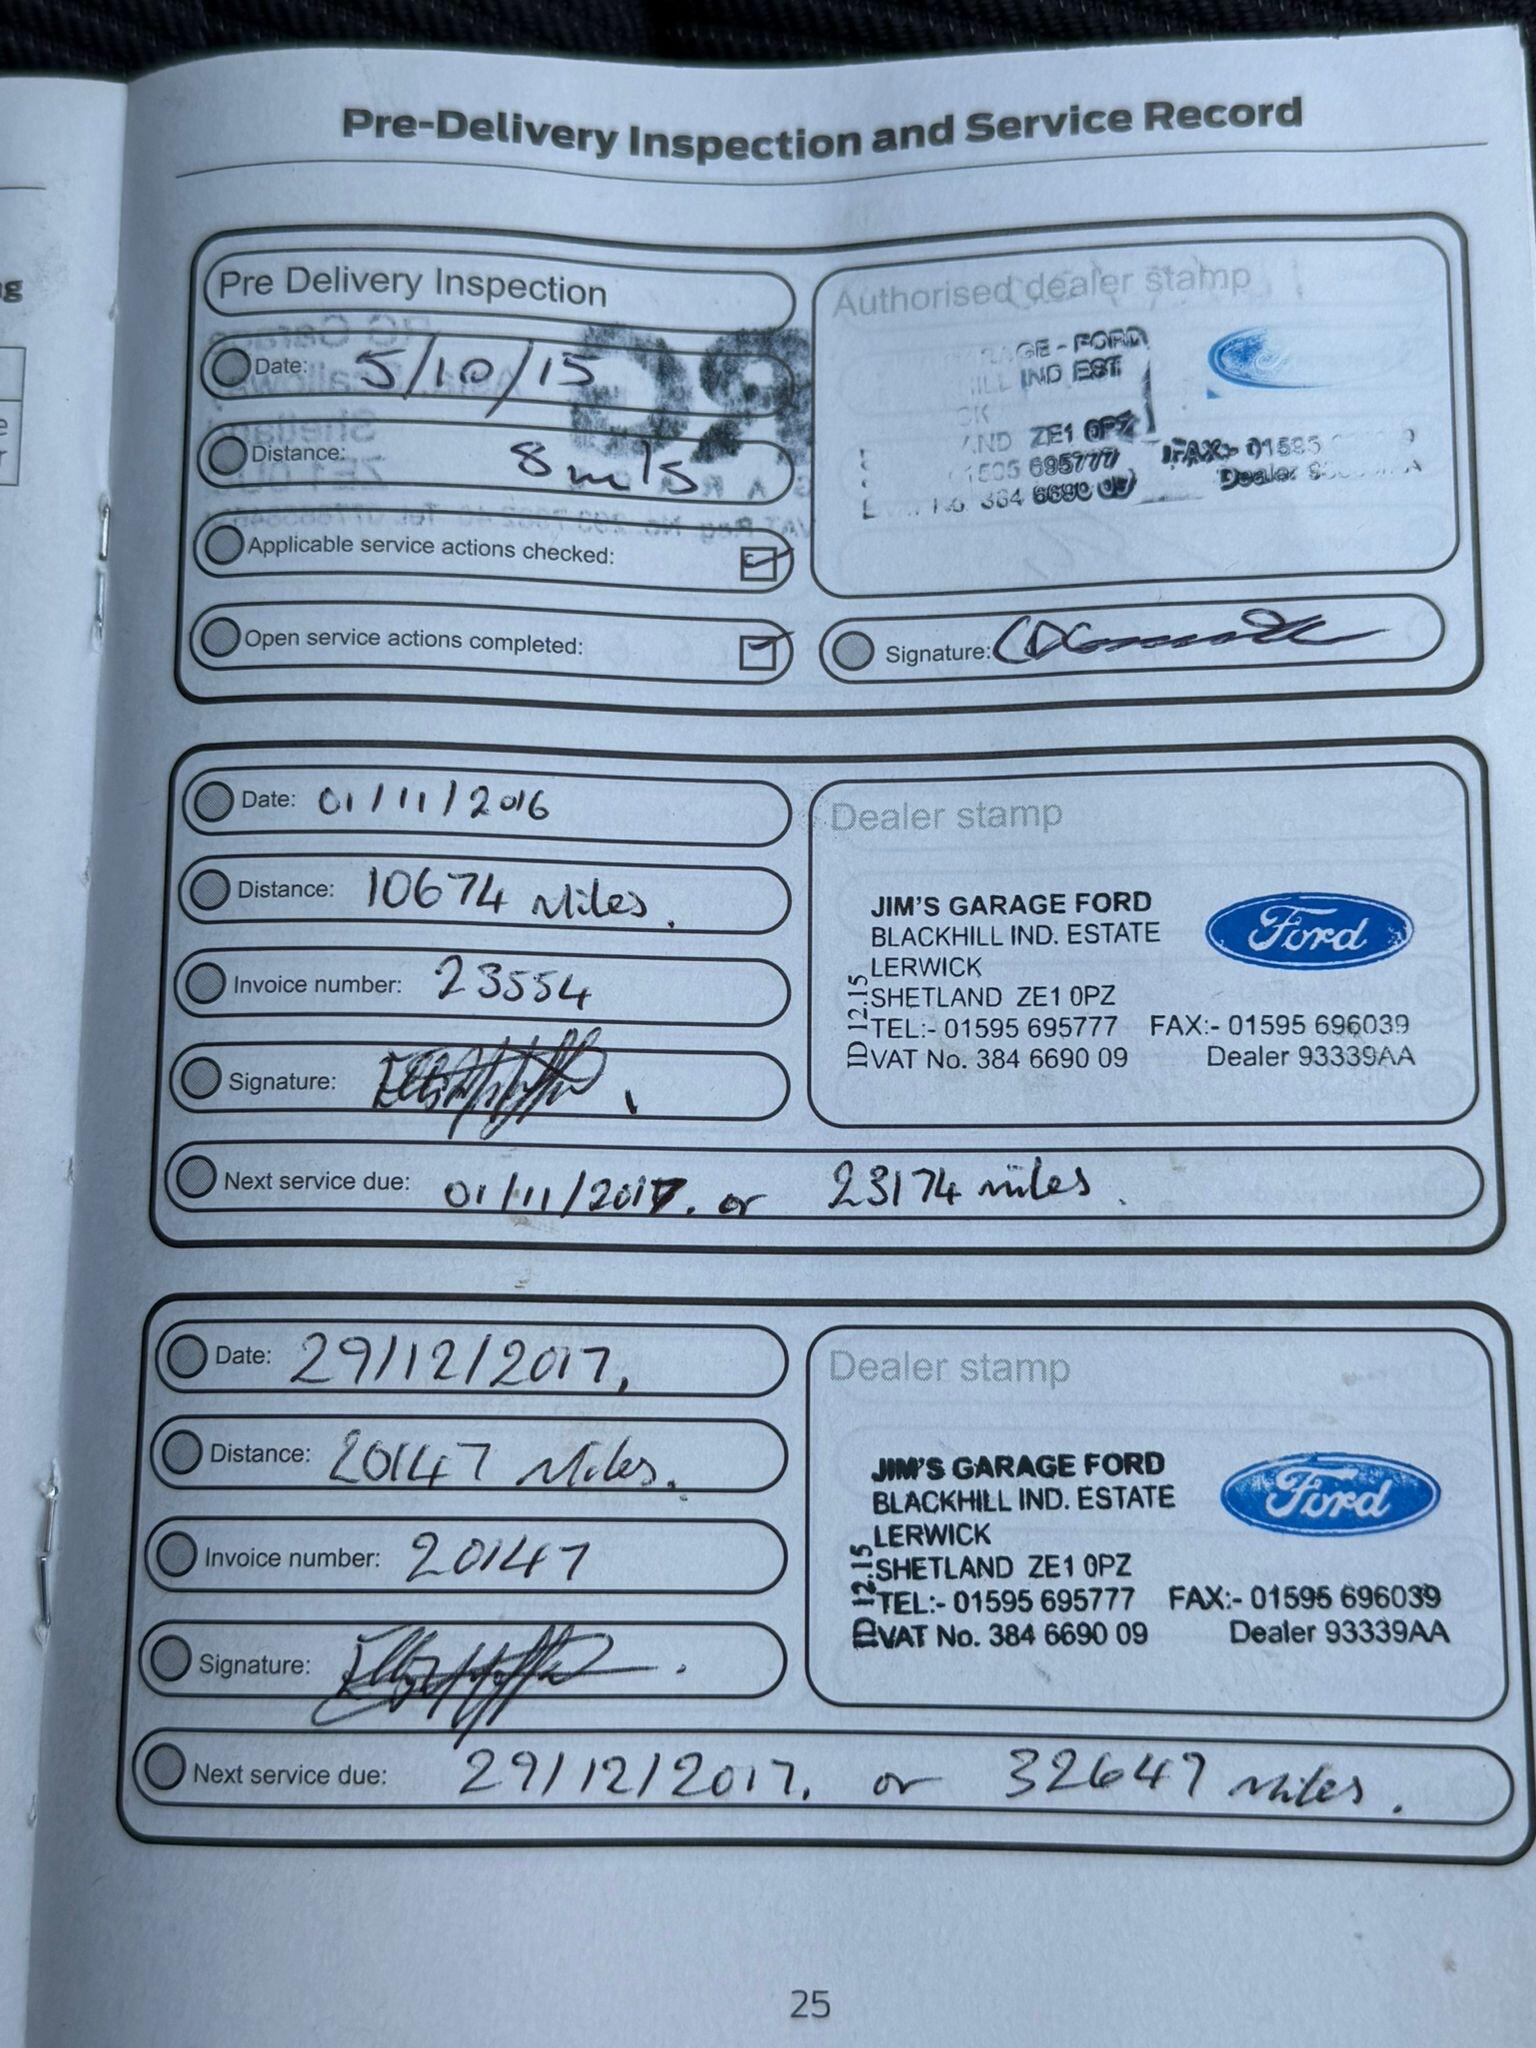 Pre-Delivery Inspection and Service Record
Pre Delivery Inspection
Date: 5/10/15
Distance: 8 mls
Applicable service actions checked:
Open service actions completed:
Authorised dealer stamp
GARAGE - FORD
HILL IND EST
ZE1 0PZ
01595 695777 FAX:- 01595
No. 384 6690 09 Dealer
Signature:
Date: 01/11/2016
Distance: 10674 Miles.
Invoice number: 23554
Signature:
Dealer stamp
JIM'S GARAGE FORD
BLACKHILL IND. ESTATE
LERWICK
SHETLAND ZE1 0PZ
TEL:- 01595 695777 FAX:- 01595 696039
VAT No. 384 6690 09 Dealer 93339AA
ID 12.15
Ford
Next service due: 01/11/2017. or 23174 miles.
Date: 29/12/2017.
Distance: 20147 Miles.
Invoice number: 20147
Signature:
Dealer stamp
JIM'S GARAGE FORD
BLACKHILL IND. ESTATE
LERWICK
SHETLAND ZE1 0PZ
TEL:- 01595 695777 FAX:- 01595 696039
VAT No. 384 6690 09 Dealer 93339AA
ID 12.15
Ford
Next service due: 29/12/2017. or 32647 Miles.
25